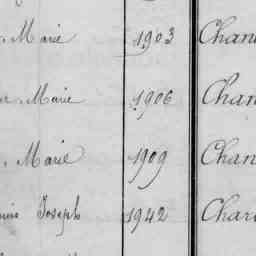 Marie 1903 Chan
Marie 1906 Chan
Marie 1909 Chan
Joseph 1942 Char